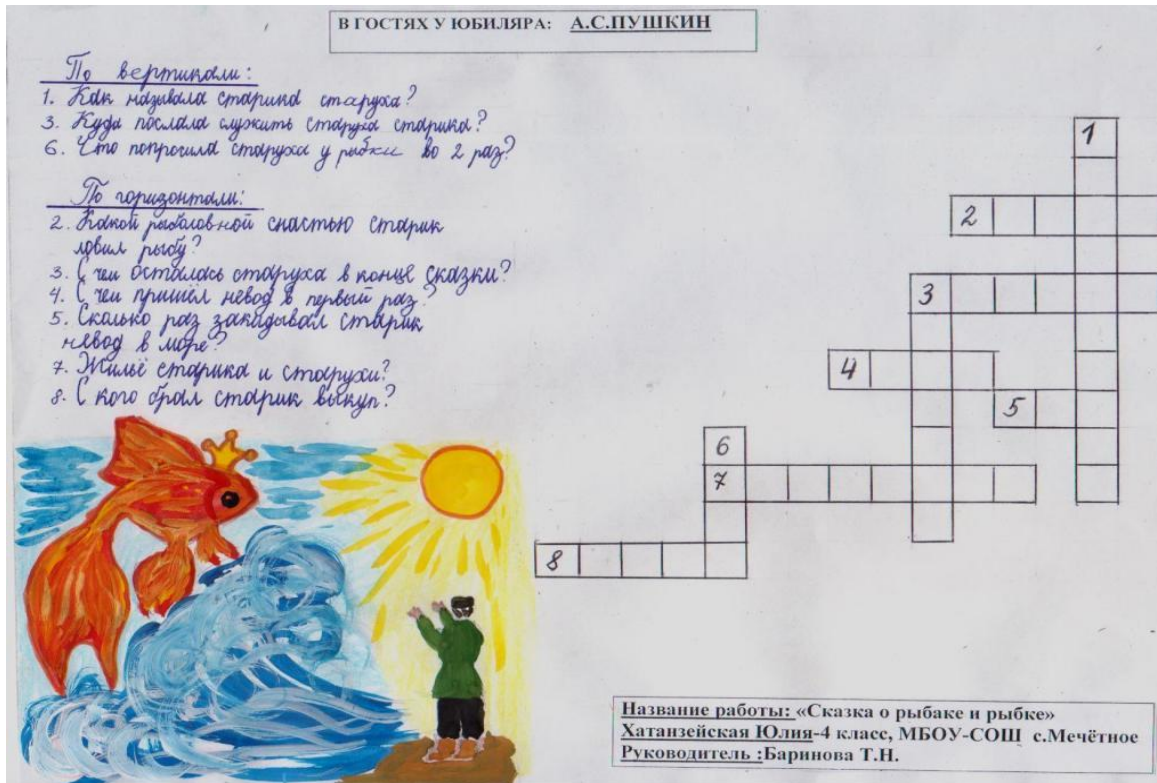 В ГОСТЯХ У ЮБИЛЯРА: А.С.ПУШКИН
По вертикали:
1. Как называла старика старуха?
3. Куда послала служить старуха старика?
6. Что попросила старуха у рыбки во 2 раз?
По горизонтали:
2. Какой рыболовной снастью старик
ловил рыбу?
3. С чем осталась старуха в конце сказки?
4. С чем пришёл невод в первый раз?
5. Сколько раз закидывал старик
невод в море?
7. Жильё старика и старухи?
8. С кого брал старик выкуп?
1
2
3
4
5
6
7
8
Название работы: «Сказка о рыбаке и рыбке»
Хатанзейская Юлия-4 класс, МБОУ-СОШ с.Мечётное
Руководитель :Баринова Т.Н.